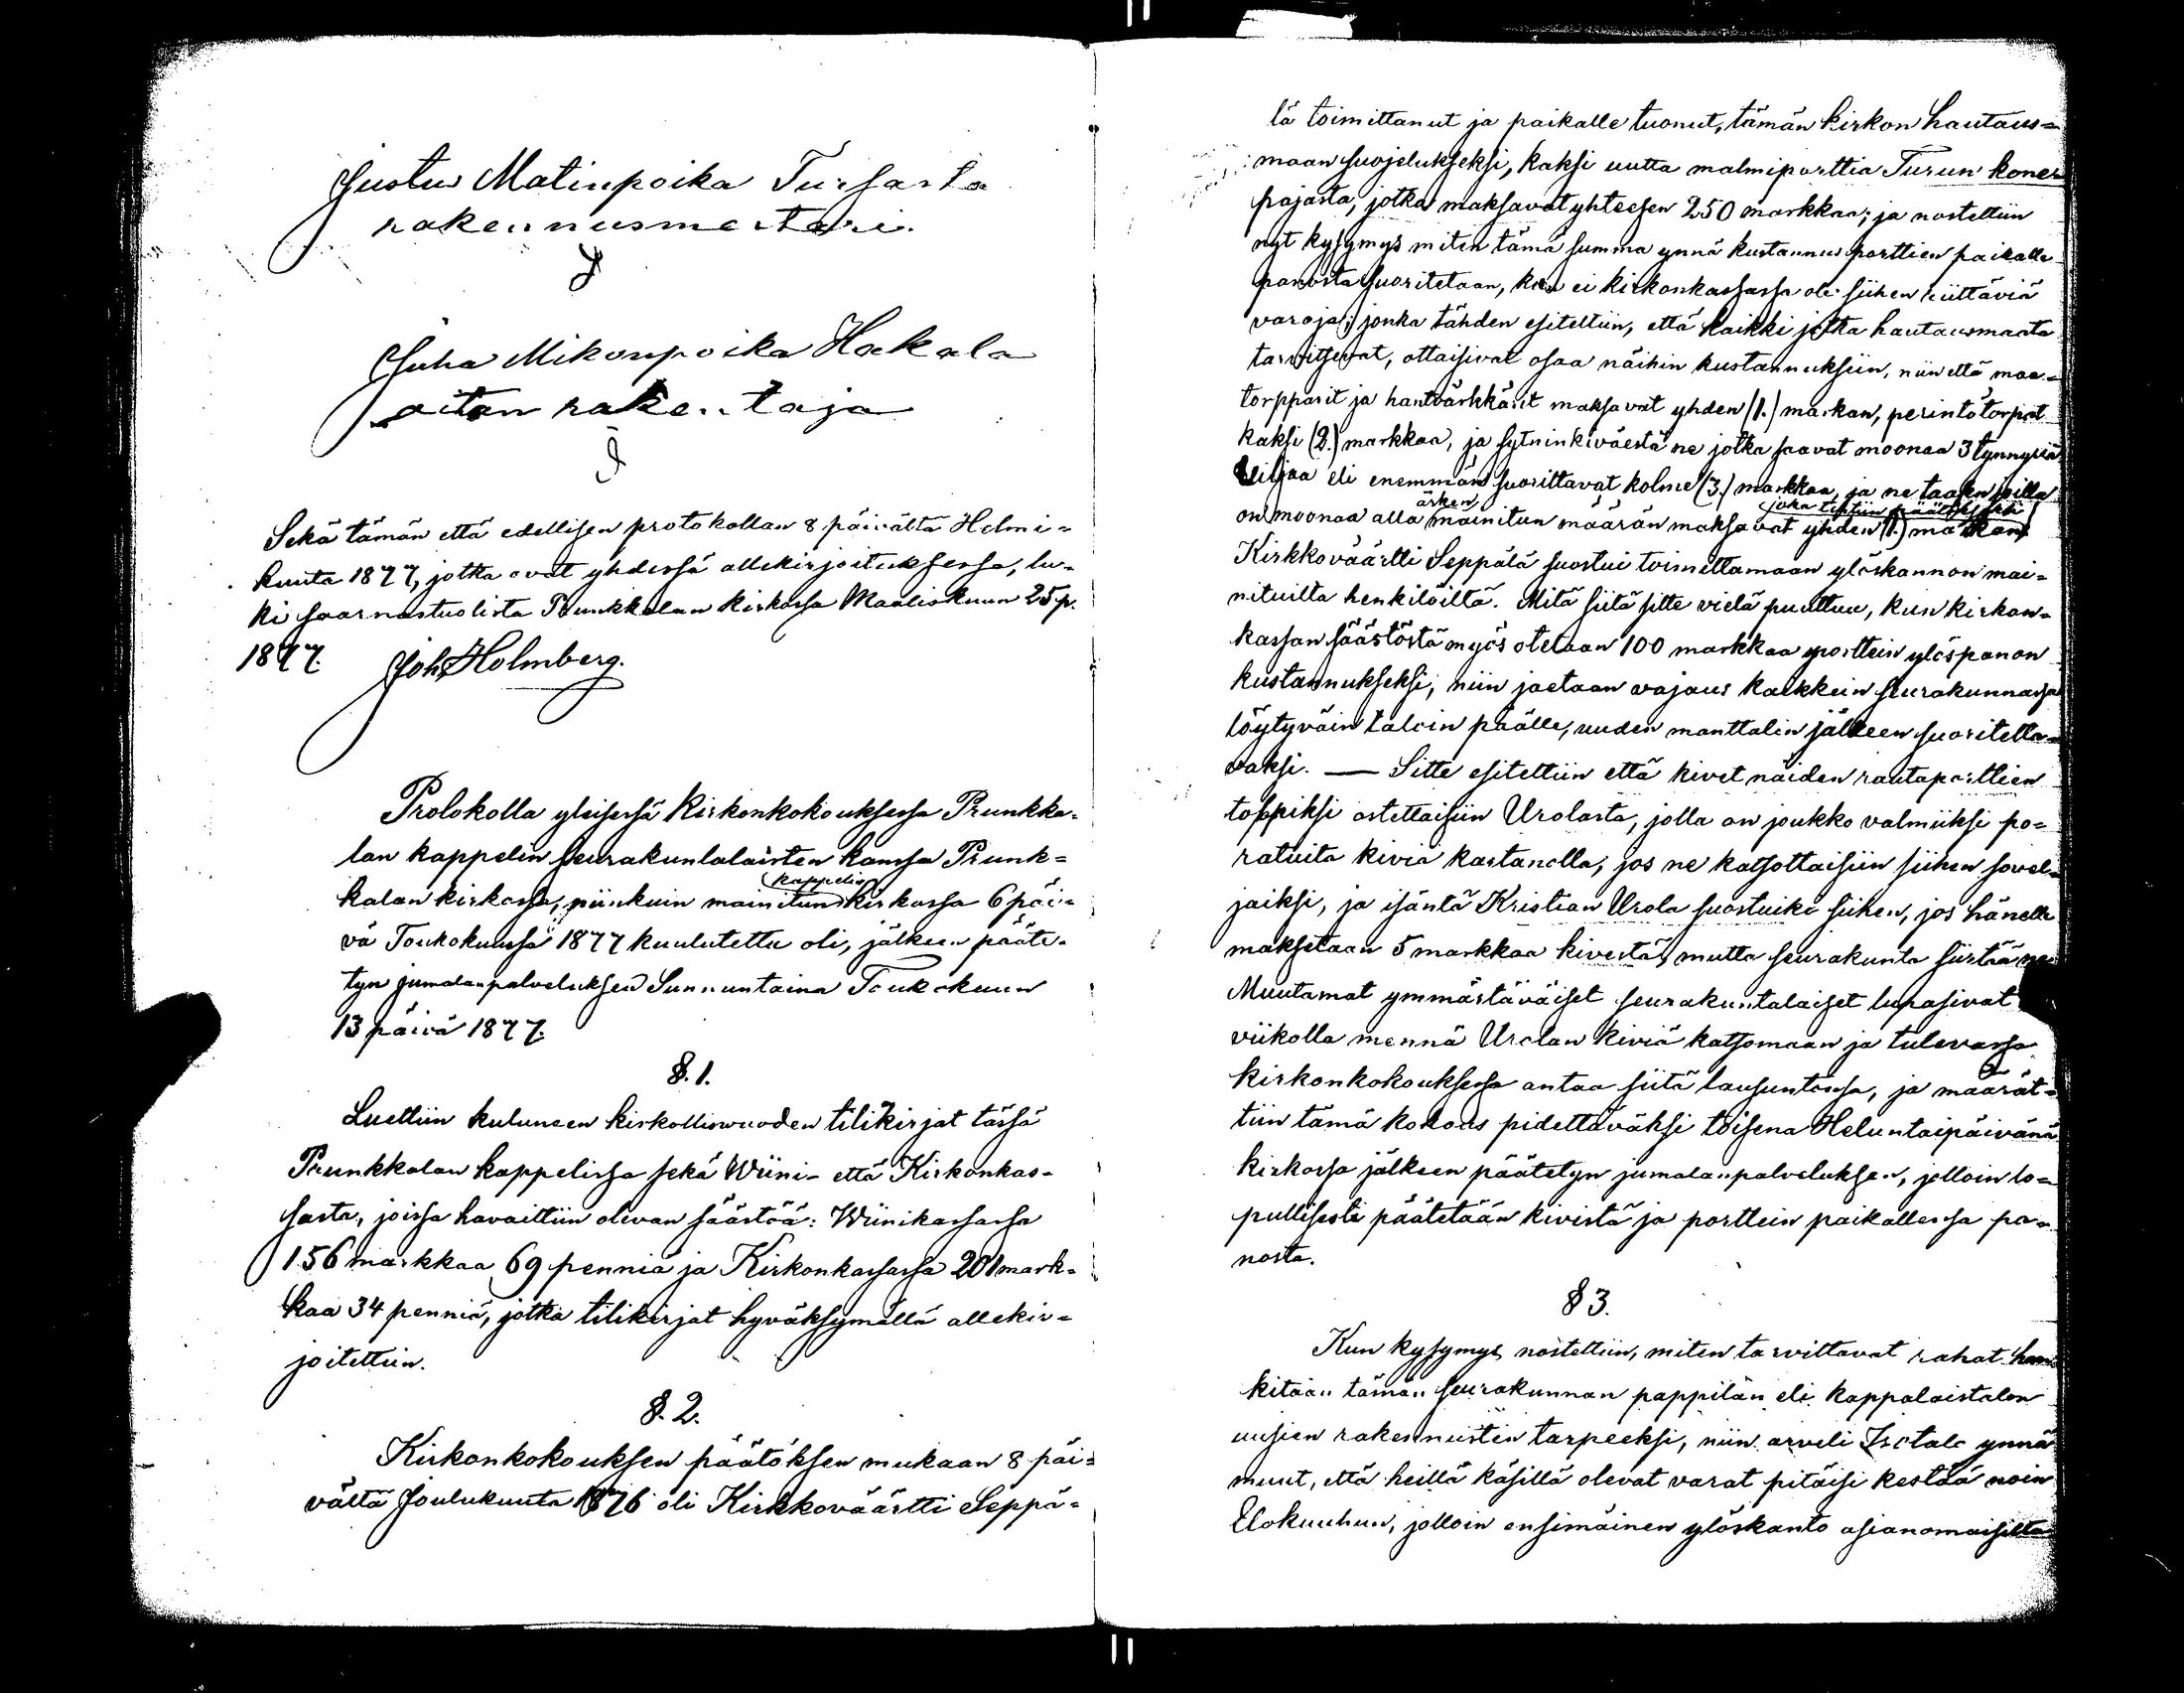 Justus Matinpoika Tursasta
rakennusmestari.
Juha Mikonpoika Hakala
aitan rakentaja
Sekä tämän että edellisen protokollan 8 päivältä Helmi=
kuuta 1877, jotka ovat yhdessä allekirjoituksessa, lu=
ki saarnastuolista Prunkkalan kirkossa Maaliskuun 25 p.
1877. Joh Holmberg.
Protokolla yleisessä Kirkonkokouksessa Prunkka=
lan kappelin seurakuntalaisten kanssa Prunk=
kappelin
kalan kirkossa, niinkuin mainitun kirkossa 6 päi=
vä Toukokuussa 1877 kuulutettu oli, jälkeen pääte=
tyn jumalanpalveluksen Sunnuntaina Toukokuun
13 päivä 1877.
§. 1.
Luettiin kuluneen kirkollisvuoden tilikirjat tässä
Prunkkalan kappelissa sekä Wiini- että Kirkonkas=
sasta, joissa havaittiin olevan säästöä: Wiinikassassa
156 markkaa 69 penniä ja Kirkonkassassa 201 mark=
kaa 34 penniä, jotka tilikirjat hyväksymällä allekir=
joitettiin.
§. 2.
Kirkonkokouksen päätöksen mukaan 8 päi=
vältä Joulukuuta 1876 oli Kirkkoväärtti Seppä=
lä toimittanut ja paikalle tuonut, tämän kirkon hautaus=
maan suojelukseksi, kaksi uutta malmiporttia Turun kone=
pajasta, jotka maksavat yhteesen 250 markkaa; ja nostettiin
nyt kysymys miten tämä summa ynnä kustannus porttien paikalle
panosta suoritetaan, kun ei kirkonkassassa ole siihen riittäviä
varoja; jonka tähden esiteltiin, että kaikki jotka hautausmaata
tarvitsevat, ottaisivat osaa näihin kustannuksiin, niin että maa=
torpparit ja hantvärkkärit maksavat yhden (1.) markan, perintötorpat
kaksi (2.) markkaa, ja sytninkiväestä ne jotka saavat moonaa 3 tynnyriä
viljaa eli enemmän suorittavat kolme (3.) markkaa, ja ne taasen joilla
ärken joka tehtiin päätökseksi
on moonaa alla mainitun määrän maksavat yhden (1.) markan
Kirkkoväärtti Seppälä suostui toimittamaan ylöskannon mai=
nituilta henkilöiltä. Mitä siitä sitte vielä puuttuu, kun kirkon=
kassan säästöstä myös otetaan 100 markkaa porttein ylöspanon
kustannukseksi, niin jaetaan vajaus kaikkein seurakunnassa
löytyväin taloin päälle, uuden manttalin jälkeen suoritetta=
vaksi. — Sitte esiteltiin että kivet näiden rautaporttien
toppiksi ostettaisiin Urolasta, jolla on joukko valmiiksi po=
ratuita kiviä kartanolla, jos ne katsottaisiin siihen sovel=
jaiksi, ja isäntä Kristian Urola suostuiki siihen, jos hänelle
maksetaan 5 markkaa kivestä, mutta seurakunta siirtää ne
Muutamat ymmärtäväiset seurakuntalaiset lupasivat
viikolla mennä Urolan kiviä katsomaan ja tulevassa
kirkonkokouksessa antaa siitä lausuntonsa, ja määrät=
tiin tämä kokous pidettäväksi toisena Heluntaipäivänä
kirkossa jälkeen päätetyn jumalanpalveluksen, jolloin lo=
pullisesti päätetään kivistä ja porttein paikallensa pa=
nosta.
§ 3.
Kun kysymys nostettiin, miten tarvittavat rahat han
kitaan tämän seurakunnan pappilan eli kappalaistalon
uusien rakennusten tarpeeksi, niin arveli Isotalo ynnä
muut, että heillä käsillä olevat varat pitäisi kestää noin
Elokuuhun, jolloin ensimäinen ylöskanto asianomaisilta